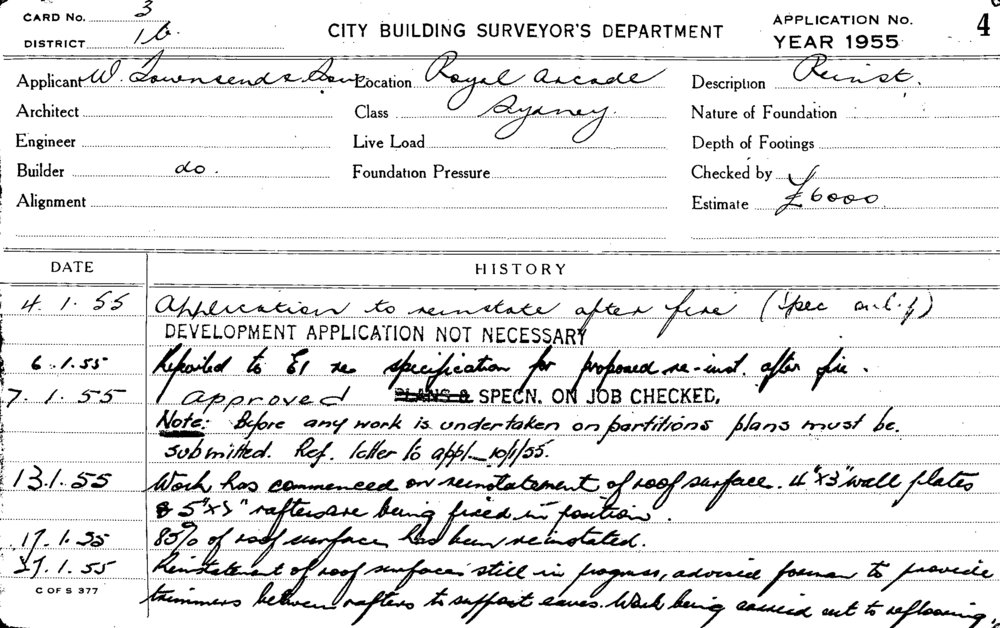 CARD No. 3
CITY BUILDING SURVEYOR'S DEPARTMENT
APPLICATION No. 4
DISTRICT 1b.
YEAR 1955
Applicant W. Townsend & Sons Location Royal Arcade Description Reinst.
Architect Class Sydney. Nature of Foundation
Engineer Live Load Depth of Footings
Builder do. Foundation Pressure Checked by
Alignment Estimate £6000
DATE HISTORY
4.1.55 Application to reinstate after fire (Spec only)
DEVELOPMENT APPLICATION NOT NECESSARY
6.1.55 Reported to E1 re specification for proposed re-inst. after fire.
7.1.55 approved PLANS & SPECN. ON JOB CHECKED,
Note: Before any work is undertaken on partitions plans must be
submitted. Ref. letter to appl. 10/1/55.
13.1.55 Work has commenced on reinstatement of roof surface. 4"x3" wall plates
& 5"x3" rafters are being fixed in position.
17.1.55 85% of roof surface has been reinstated.
27.1.55 Reinstatement of roof surfaces still in progress, advised foreman to provide
C OF S 377
trimmers between rafters to support eaves. Work being carried out to reflooring,